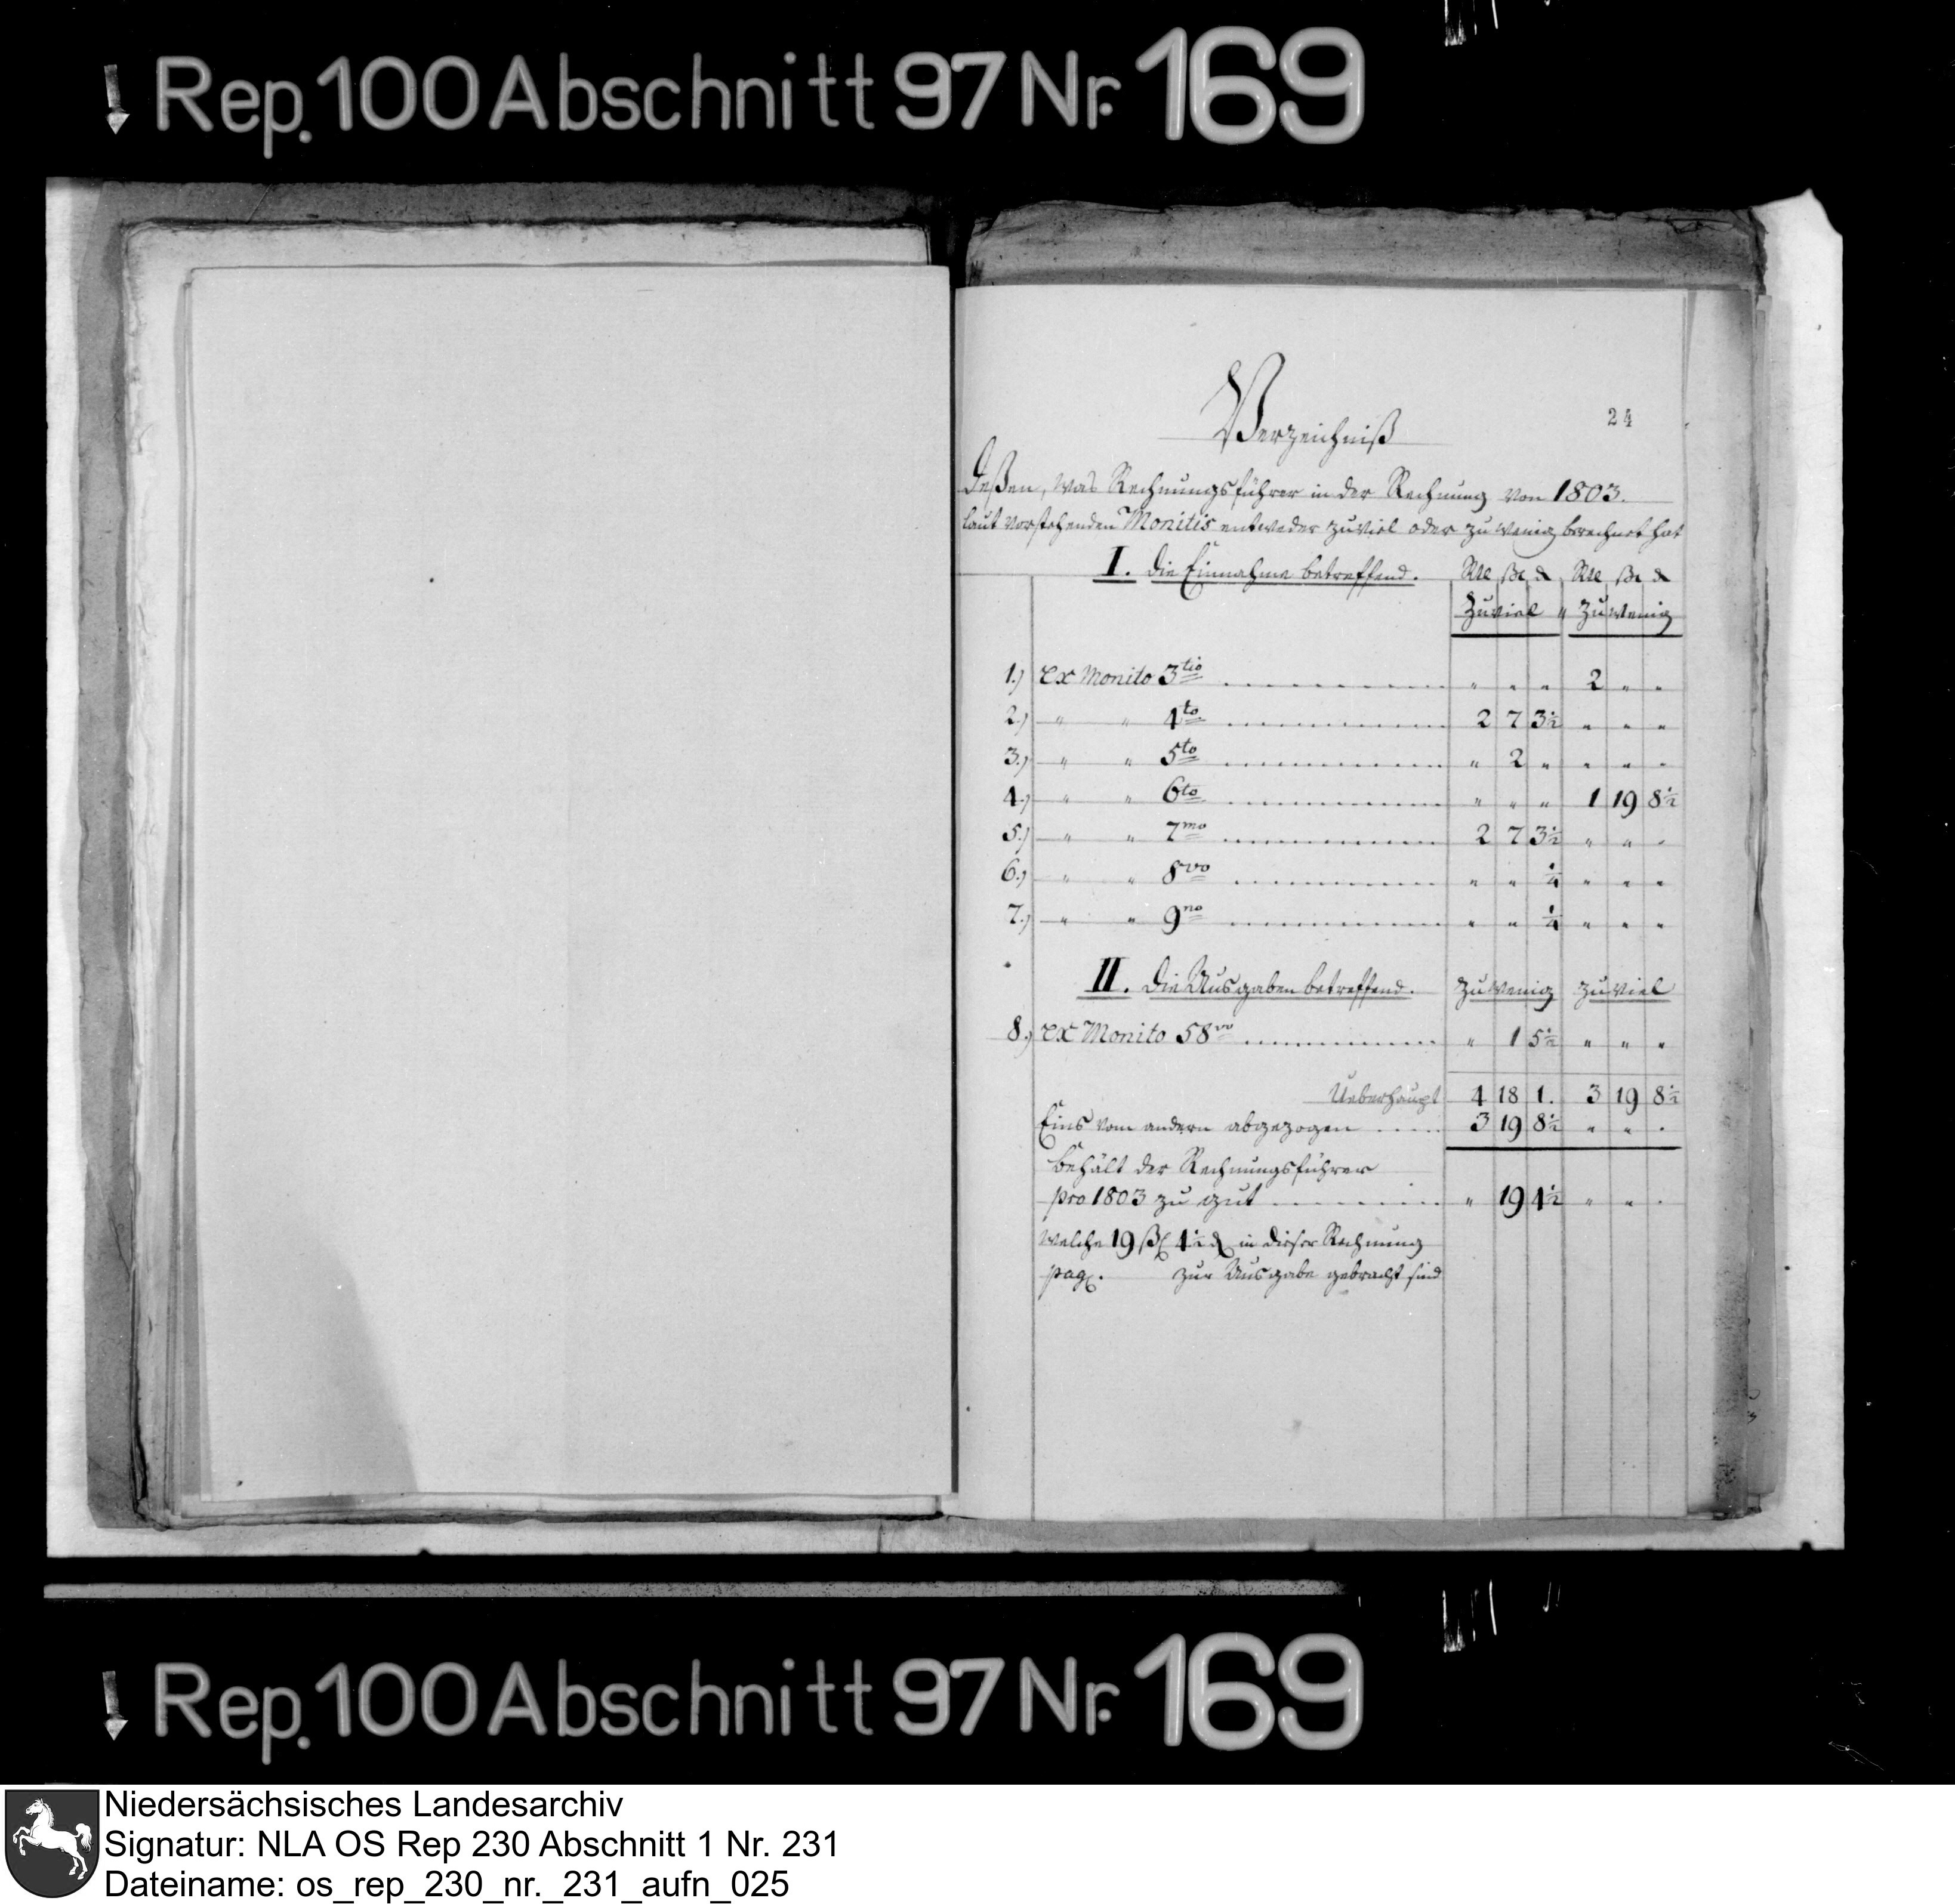 Rep. 100 Abschnitt 97 Nr. 169
24
Verzeichniß
deßen, was Rechnungsführer in der Rechnung von 1803.
laut vorstehenden Monitis entweder zuviel oder zu wenig berechnet hat
I. Die Einnahme betreffend. Rtl ßl ₰ Rtl ßl ₰
Zuviel " Zuwenig
1.) Ex Monito 3tio " " " 2 " "
2.) " " 4to 2 7 3½ " " "
3.) " " 5to " 2 " " " "
4.) " " 6to " " " 1 19 8½
5.) " " 7mo 2 7 3½ " " "
6.) " " 8vo " " ¼ " " "
7.) " " 9no " " ¼ " " "
II. Die Ausgaben betreffend. Zuwenig Zuviel
8.) Ex Monito 58vo " 1 5½ " " "
Ueberhaupt 4 18 1. 3 19 8½
Eins vom andern abgezogen 3 19 8½ " " "
behält der Rechnungsführer
pro 1803 zu gut " 19 4½ " " "
welche 19 ßl 4½ ₰ in dieser Rechnung
pag. zur Ausgabe gebracht sind
Rep. 100 Abschnitt 97 Nr. 169
Niedersächsisches Landesarchiv
Signatur: NLA OS Rep 230 Abschnitt 1 Nr. 231
Dateiname: os_rep_230_nr._231_aufn_025